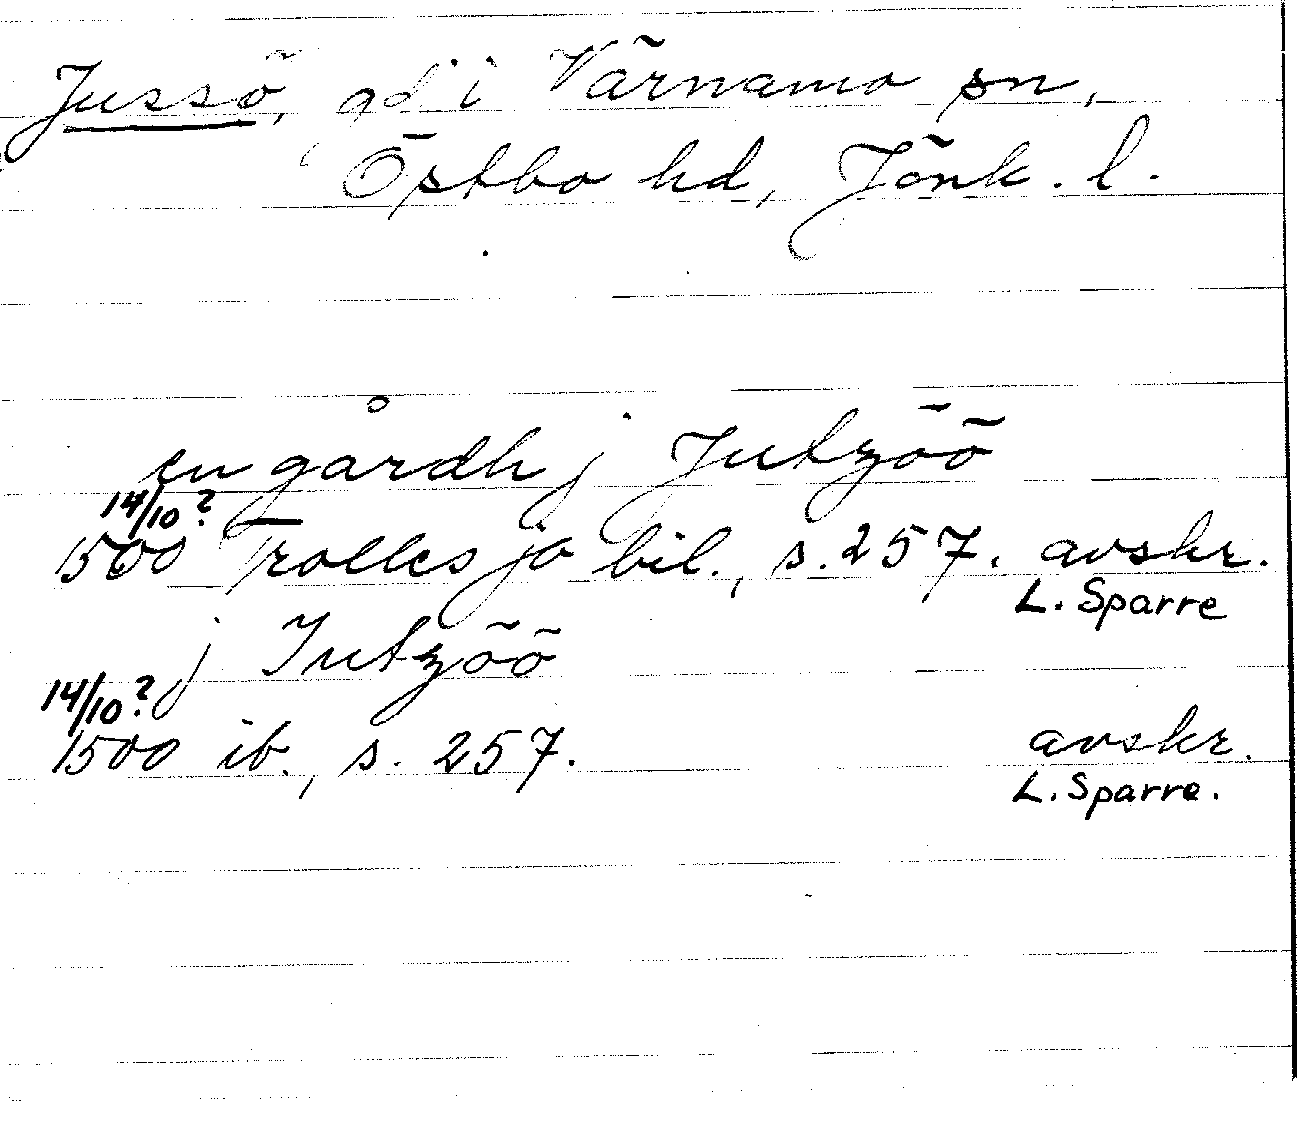 Jussö, gd i Värnamo sn,
Östbo hd, Jönk. l.
en gårdh j Jutzöö
14/10 ?
1500 Trolles jo bil., s. 257. avskr.
L. Sparre
j Jutzöö
14/10 ?
1500 ib., s. 257. avskr.
L. Sparre.